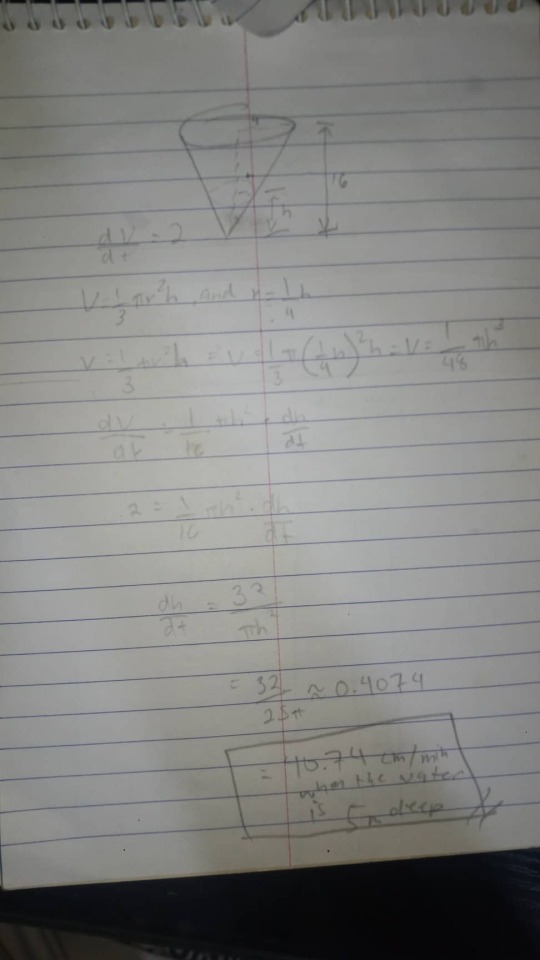 4
16
h
dV/dt = 2
V=1/3 πr²h, And r=1/4 h
V=1/3 πr²h = V=1/3 π(1/4 h)²h = V=1/48 πh³
dV/dt = 1/16 πh² · dh/dt
2 = 1/16 πh² · dh/dt
dh/dt = 32/πh²
= 32/25π ≈ 0.4074
= 40.74 cm/min
when the water
is 5m deep